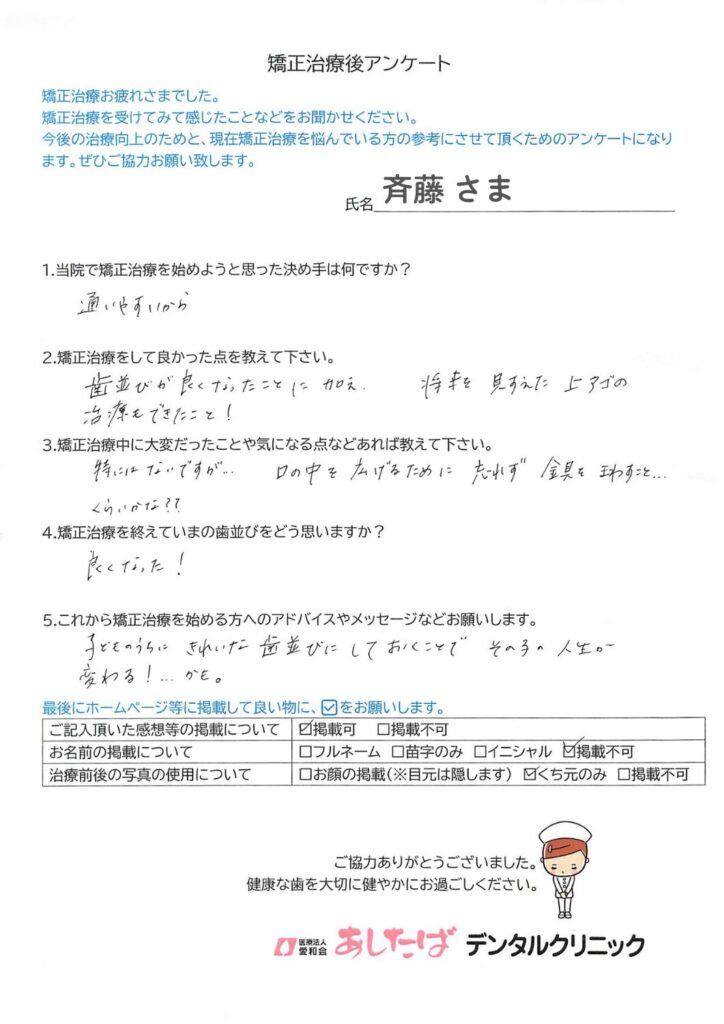 矯正治療後アンケート
矯正治療お疲れさまでした。
矯正治療を受けてみて感じたことなどをお聞かせください。
今後の治療向上のためと、現在矯正治療を悩んでいる方の参考にさせて頂くためのアンケートになり
ます。ぜひご協力お願い致します。
氏名 斉藤 さま
1.当院で矯正治療を始めようと思った決め手は何ですか？
通いやすいから
2.矯正治療をして良かった点を教えて下さい。
歯並びが良くなったことに加え、 将来を見すえた上アゴの
治療もできたこと！
3.矯正治療中に大変だったことや気になる点などあれば教えて下さい。
特にはないですが… 口の中を広げるために忘れず金具をまわすこと…
くらいかな??
4.矯正治療を終えていまの歯並びをどう思いますか？
良くなった！
5.これから矯正治療を始める方へのアドバイスやメッセージなどお願いします。
子どものうちにきれいな歯並びにしておくことでその子の人生が
変わる！…かも。
最後にホームページ等に掲載して良い物に、☑をお願いします。
ご記入頂いた感想等の掲載について ☑掲載可 □掲載不可
お名前の掲載について □フルネーム □苗字のみ □イニシャル ☑掲載不可
治療前後の写真の使用について □お顔の掲載(※目元は隠します) ☑くち元のみ □掲載不可
ご協力ありがとうございました。
健康な歯を大切に健やかにお過ごしください。
医療法人
愛和会
あしたば デンタルクリニック